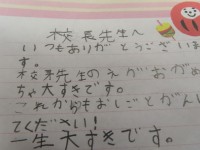 校長先生へ
いつもありがとうございま
す。
校長先生のえがおがめ
ちゃ大すきです。
これからもおしごとがんば
てください!
一生大すきです。